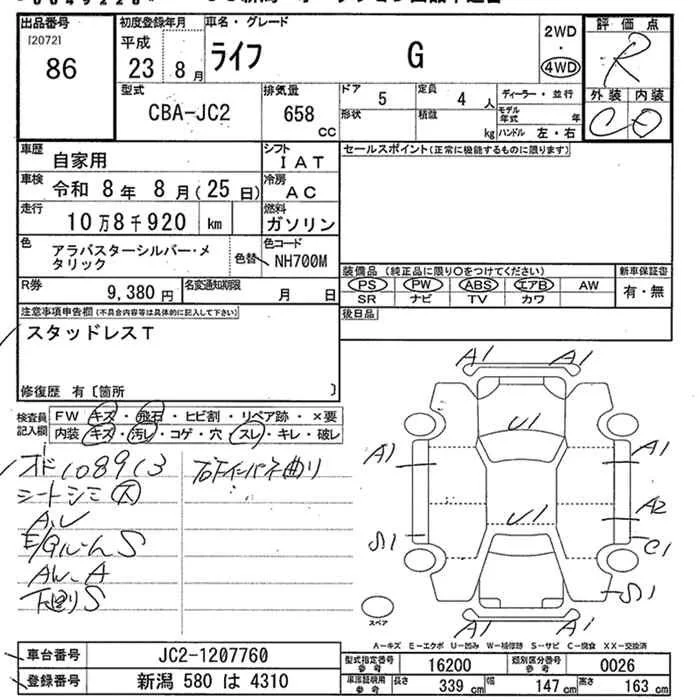 出品番号
[2072]
86
初度登録年月
平成
23 8月
車名・グレード
ライフ G
2WD
・
4WD
評価点
R
外装 内装
C D
型式
CBA-JC2
排気量
658 CC
ドア
5
定員
4 人
ディーラー・並行
形状
積載
kg
モデル年式 年
ハンドル 左・右
車歴
自家用
シフト
IAT
車検
令和 8年 8月(25日)
冷房
AC
走行
10万8千920 km
燃料
ガソリン
色
アラバスターシルバー・メタリック
色替
色コード
NH700M
R券
9,380円
名変通知期限
月 日
セールスポイント(正常に機能するものに限ります)
装備品(純正品に限り〇をつけてください)
PS PW ABS エアB AW
SR ナビ TV カワ
新車保証書
有・無
後日品
注意事項申告欄(不具合内容等は具体的に記入して下さい)
スタッドレスT
修復歴 有〔箇所 〕
検査員記入欄
FW キズ・飛石・ヒビ割・リペア跡・×要
内装 キズ・汚レ・コゲ・穴・スレ・キレ・破レ
オド108913
シートシミ 大
A,U
E/Gルーム S
AW.A
下廻りS
右インパネ曲り
A1 A1
U1
A1 A1
A2
U1
S1 C1
S1
A1 A1
スペア
A-キズ E-エクボ U-凹み W-補修跡 S-サビ C-腐食 XX-交換済
車台番号
JC2-1207760
登録番号
新潟 580 は 4310
型式指定番号参考
16200
類別区分番号参考
0026
車庫証明用参考
長さ 339 cm
幅 147 cm
高さ 163 cm